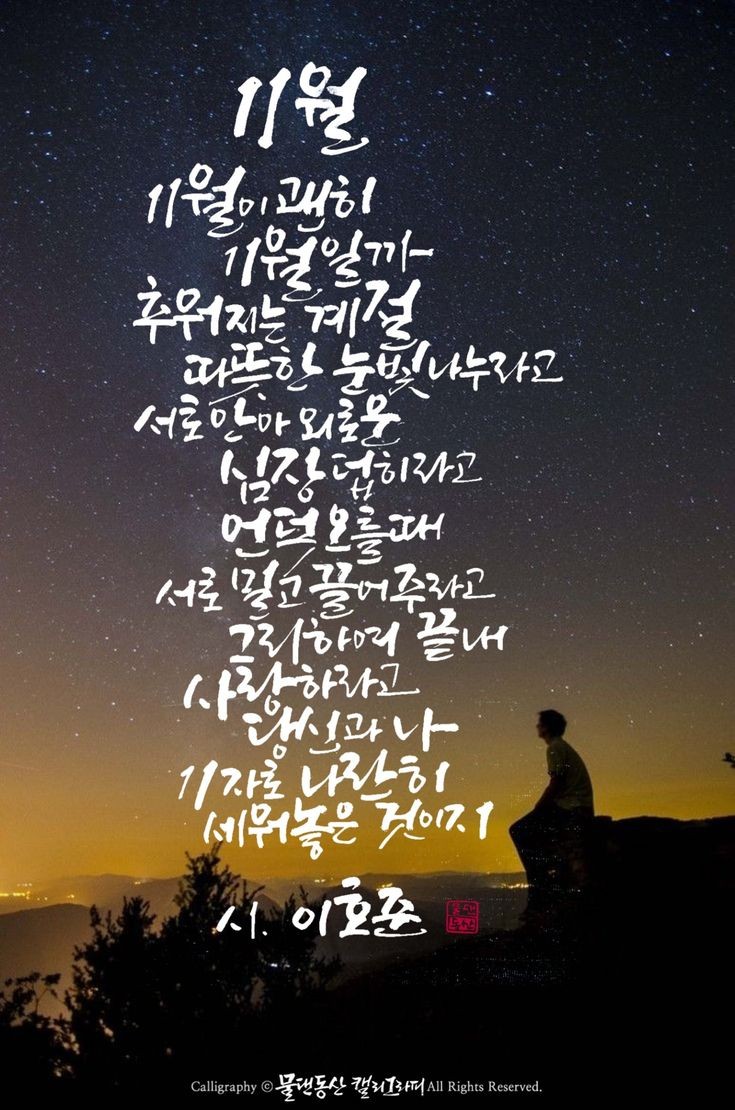 11월
11월이 괜히
11월일까
추워지는 계절
따뜻한 눈빛 나누라고
서로 안아 외로운
심장 덥히라고
언덕 오를 때
서로 밀고 끌어주라고
그리하여 끝내
사랑하라고
당신과 나
11자로 나란히
세워놓은 것이지
시. 이호준
물댄동산
Calligraphy ⓒ 물댄동산 캘리그라피 All Rights Reserved.